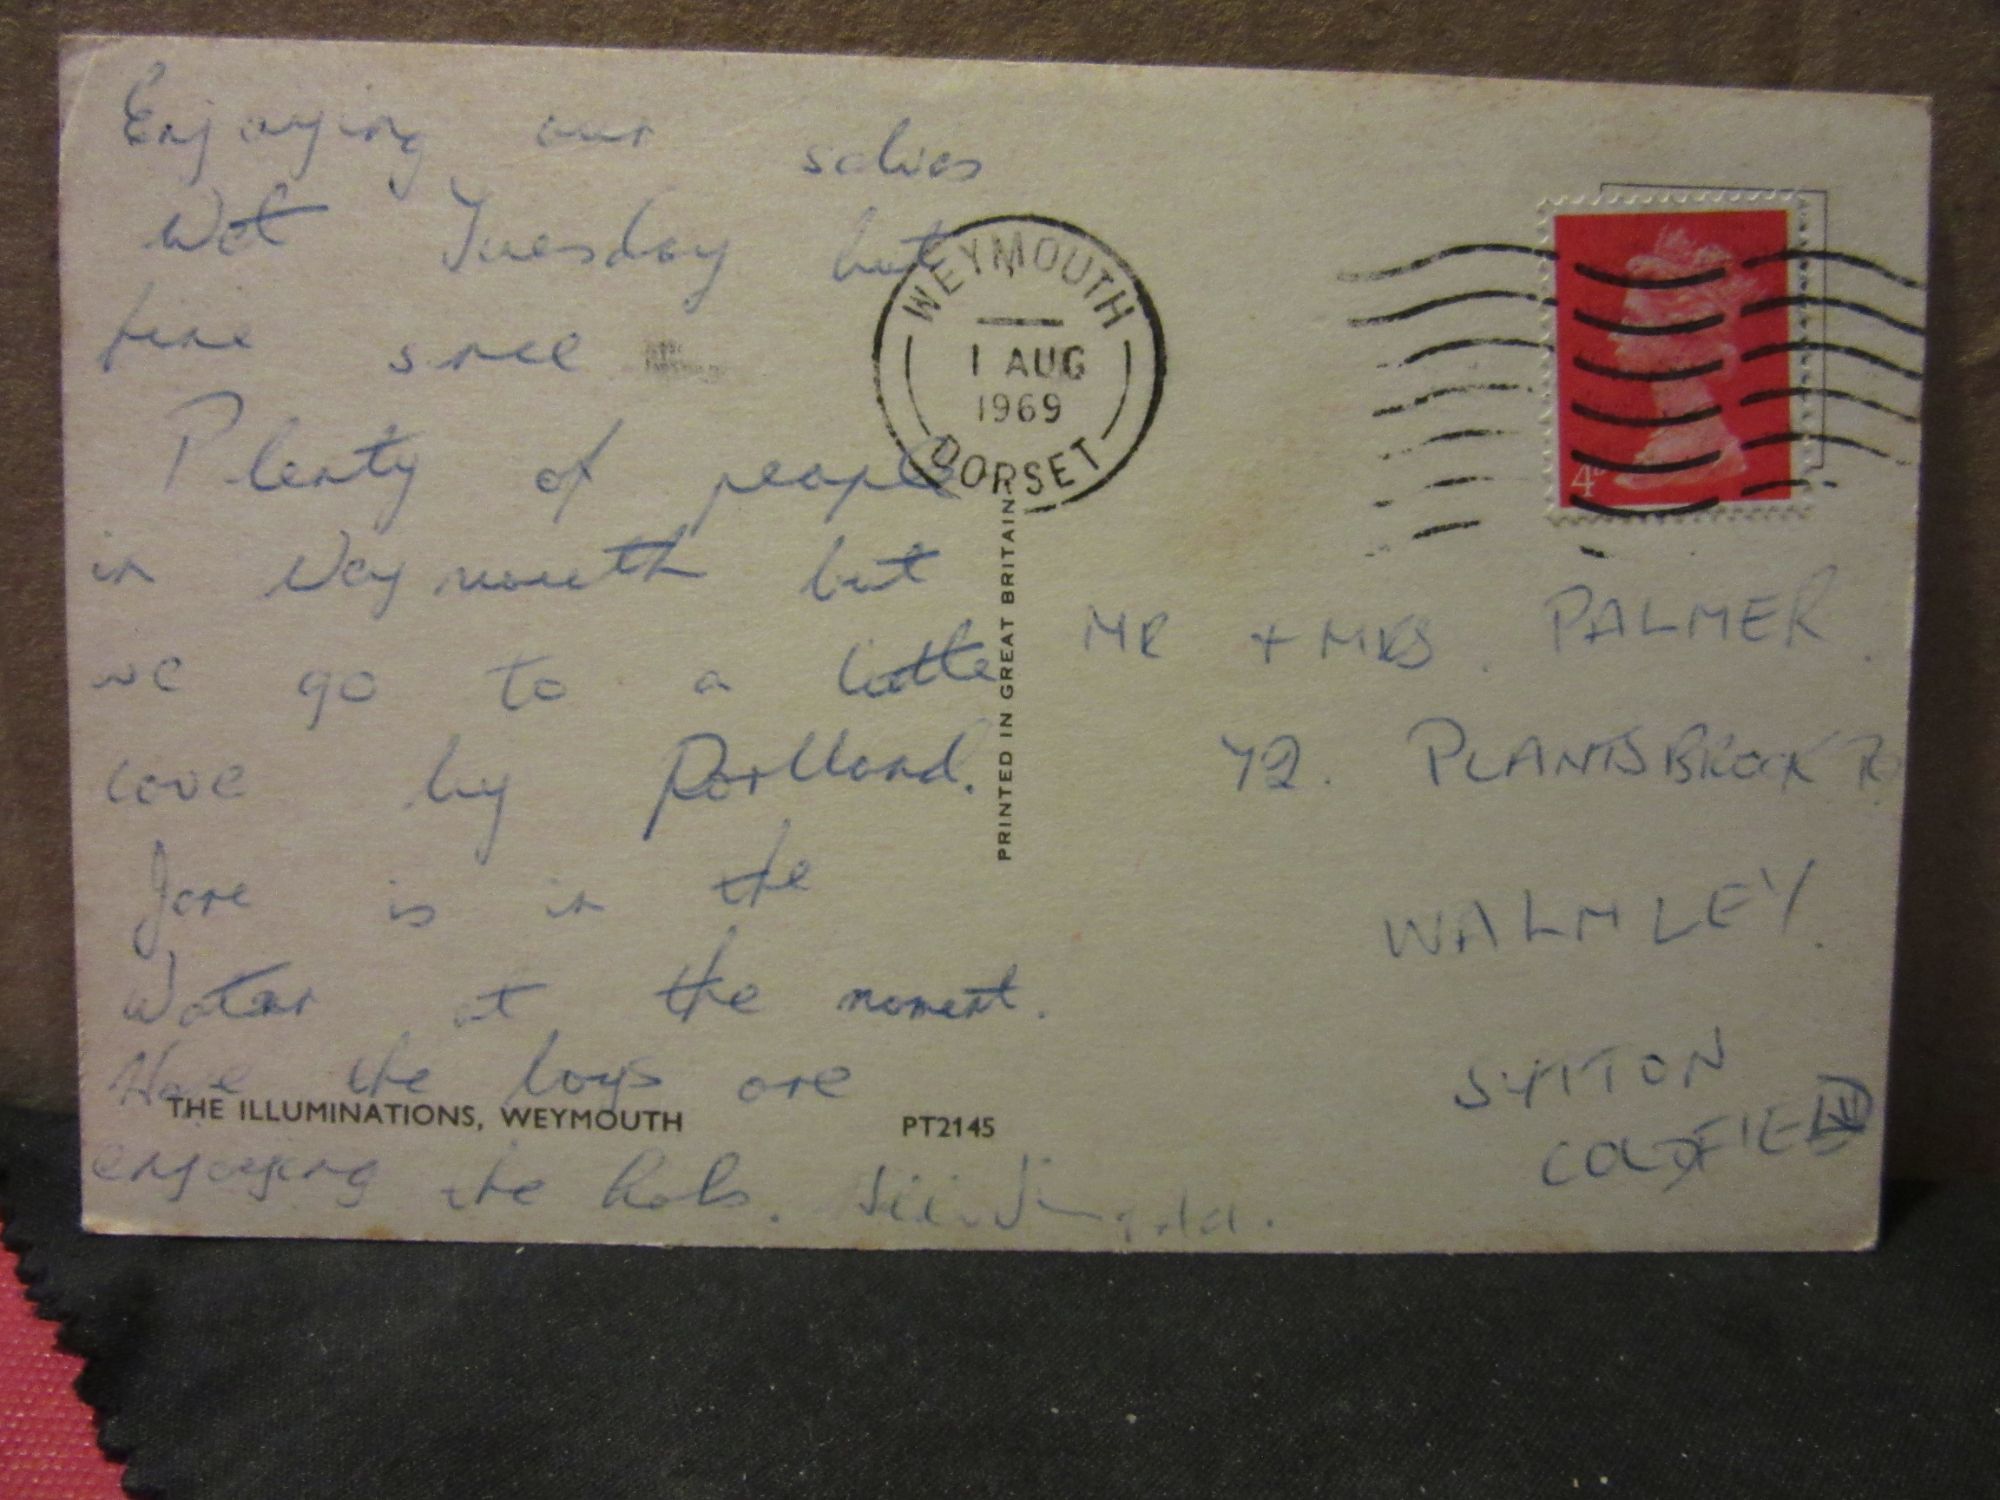 Enjoying our selves
Wet Tuesday but
fine since
Plenty of people
in Weymouth but
we go to a little
cove by Portland.
Jane is in the
Water at the moment.
Hope the boys are
enjoying the hols.
THE ILLUMINATIONS, WEYMOUTH PT2145
PRINTED IN GREAT BRITAIN
WEYMOUTH
1 AUG
1969
DORSET
4d
MR + MRS. PALMER.
72. PLANTSBROOK RD
WALMLEY.
SUTTON
COLDFIELD